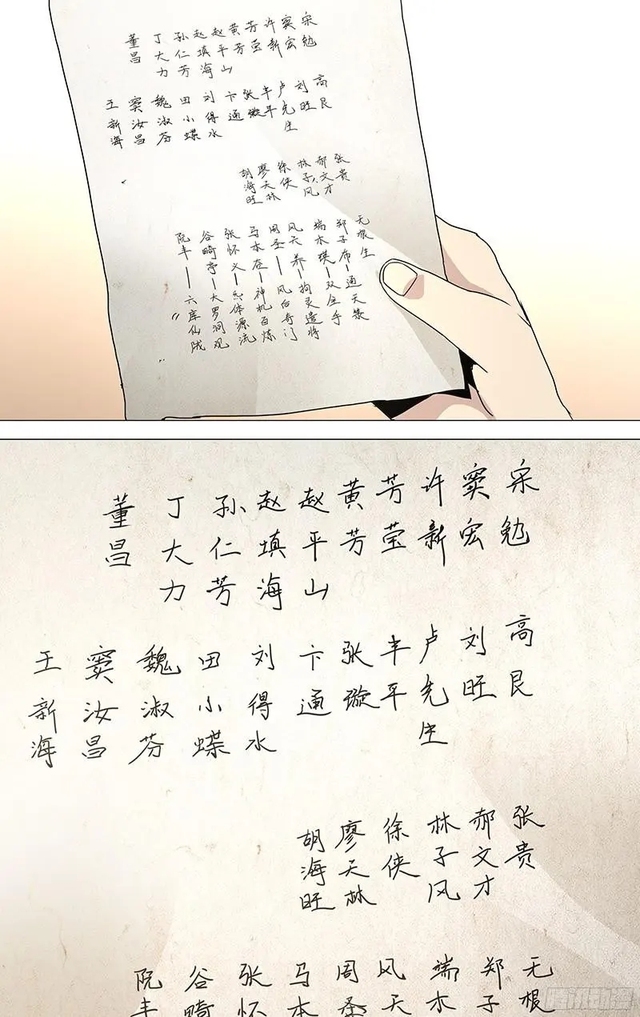 宋勉
窦宏
许新
芳莹
黄芳
赵平山
赵填海
孙仁芳
丁大力
董昌
高艮
刘旺
卢先生
丰平
张璇
卞通
刘得水
田小蝶
魏淑芬
窦汝昌
王新海
张贵
郝文才
林子风
徐侠
廖天林
胡海旺
无根生
郑子布—通天箓
端木瑛—双全手
风天养—拘灵遣将
周圣—风后奇门
马本在—神机百炼
张怀义—炁体源流
谷畸亭—大罗洞观
阮丰—六库仙
宋勉
窦宏
许新
芳莹
黄芳
赵平山
赵填海
孙仁芳
丁大力
董昌
高艮
刘旺
卢先生
丰平
张璇
卞通
刘得水
田小蝶
魏淑芬
窦汝昌
王新海
张贵
郝文才
林子风
徐侠
廖天林
胡海旺
无根
郑子
端木
风天
周圣
马本
张怀
谷畸
阮丰
腾讯动漫